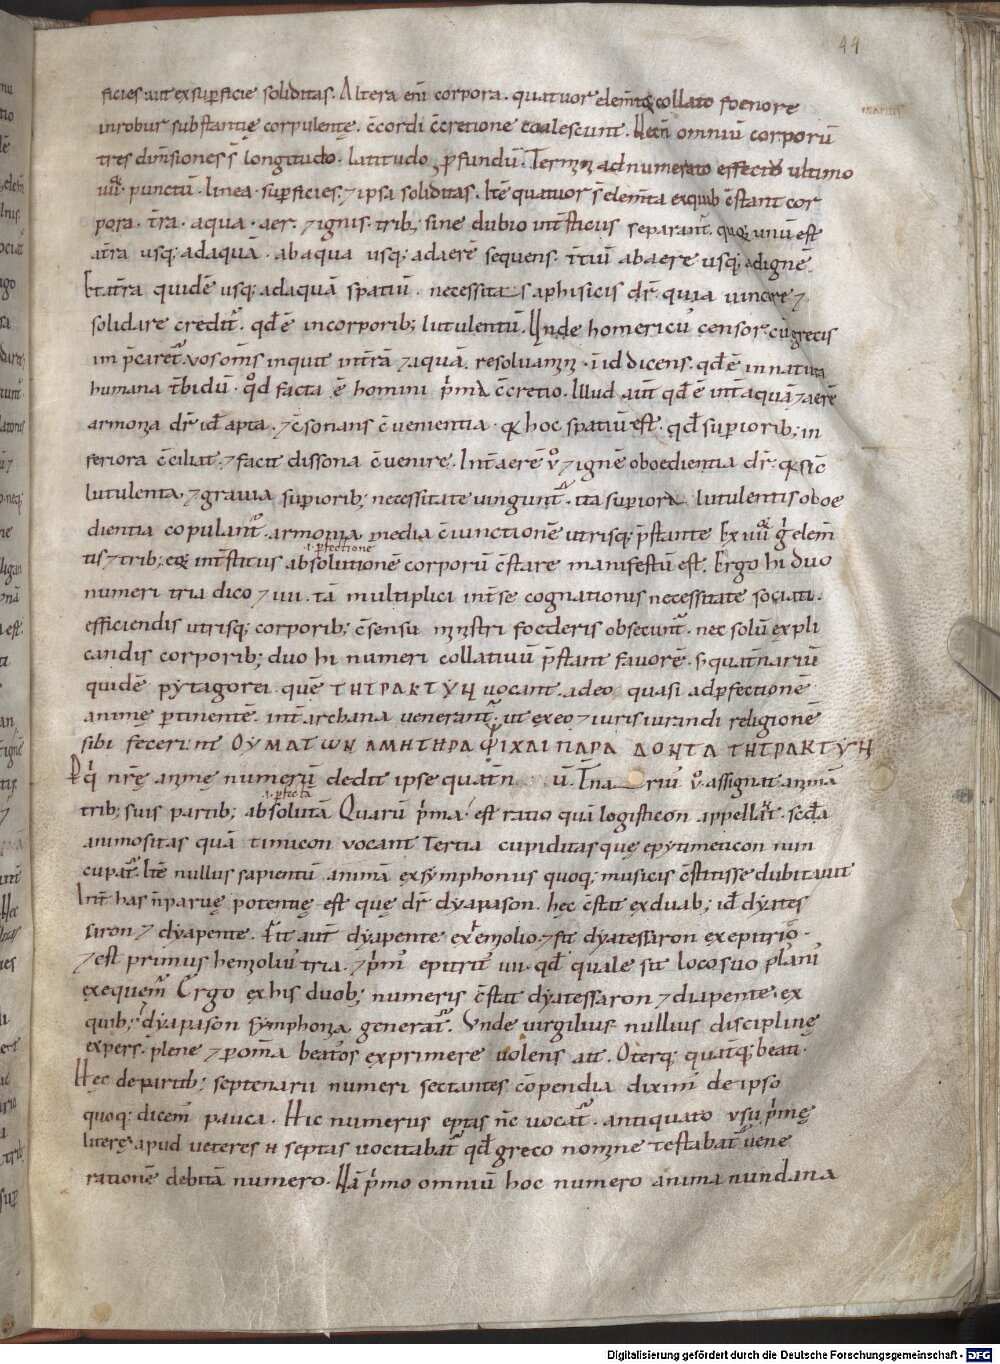 44
ficies aut ex superficie soliditas. Altera eni corpora. quatuor elemtis collato foenore
in robur substantię corpulentę. c̄cordi c̄cretione coalescunt. Hecn omniū corporū
tres dimsiones s̄ longitudo. latitudo profundū. Termin adnumerato effectō ultimo
iiii. punctū. linea. supficies. ⁊ ipsa soliditas. Itē quatuor s̄ elemta exquib c̄stant cor
pora. tra. aqua. aer. ⁊ ignis. trib; sine dubio intsticiis separant. quoꝝ unū est
atra usq; adaquā. abaqua usq; adaerē sequens. tciū abaere usq; adignē.
Et atra quidē usq; adaquā spatiū. necessitas aphisicis dr̄. quia uincire ⁊
solidare credit̄. qd ē incorporib; lutulentū. Unde homericus censor cū grecis
impcaret̄. uos oms inquit intrā ⁊ aquā resoluamini. id dicens. qd ē in natura
humana tbidū. qd facta ē homini prma c̄cretio. Illud aut qd ē int aquā ⁊ aerē
armonia dr̄ id apta. ⁊ c̄sonans c̄uenientia. qa hoc spatiū est. qd supioribs; in
feriora c̄ciliat. ⁊ facit dissona c̄uenire. Int aerē v̊ ⁊ ignē oboedientia dr̄. qa sic
lutulenta. ⁊ grauia supiorib; necessitate uingunt̄. ita supiora lutulentis oboe
dientia copulant̄. armonia media c̄iunctionē utrisq; p̄stante. Ex iiii g̊ elem
.i. pfectione
tis ⁊ trib; eoꝝ intsticiis absolutionē corporū c̄stare manifestū est. Ergo hi duo
numeri tria dico ⁊ iiii. tā multiplici intse cognationis necessitate sociati.
efficiendis utrisq; corporib; c̄sensu ministri foederis obsecunt̄. nec solū expli
candis corporib; duo hi numeri collatiuū p̄stant fauorē. s; quatnariū
quidē pytagorei. quē ΤΗΤΡΑΚΤΥΗ uocant. adeo quasi ad pfectionē
animę ptinentē. int archana uenerant̄. ut ex eo ⁊ iuris iurandi religionē
sibi fecerint ΟΥΜΑΤѠΗ ΑΜΗΤΗΡΑ ΦΙΧΑΙ ΠΑΡΑ ΔΟΗΤΑ ΤΗΤΡΑΚΤΥΗ
P qi nrę animę numerū dedit ipse quatn ū. Tna riū v̊. assignat animā
.i. pfectā
trib; suis partib; absolutā Quarū prma est ratio quā logisticon appellat̄. secda
animositas quā timicon vocant Tertia cupiditas quę epytimeticon nun
cupat̄. Itē nullus sapientū animā ex symphoniis quoq; musicis c̄stitisse dubitauit
Int has n̄ paruę potentię est quę dr̄ dyapason. hęc c̄stat ex duab; id dyates
saron ⁊ dyapente. Fit aut dyapente ex emiolio. ⁊ fit dyatessaron ex epitrio.
⁊ est primus hemioliū tria. ⁊ prm epitrit iiii. qd quale sit loco suo planī
exequem̄. Ergo ex his duob; numeris c̄stat dyatessaron ⁊ diapente. ex
quib; dyapason symphonia generat̄. Vnde uirgilius nullius disciplinę
expers. plene ⁊ pomīa beatos exprimere uolens ait. O terq; quatq; beati.
Hęc de partib; septenarii numeri sectantes cōpendia diximus de ipso
quoq; dicem pauca. Hic numerus eptas nc uocat̄. antiquato vsu prmę
literę apud ueteres н septas uocitabat̄ qd greco nomine testabat̄ uene
rationē debitā numero. Nā prmo omniū hoc numero anima mundana